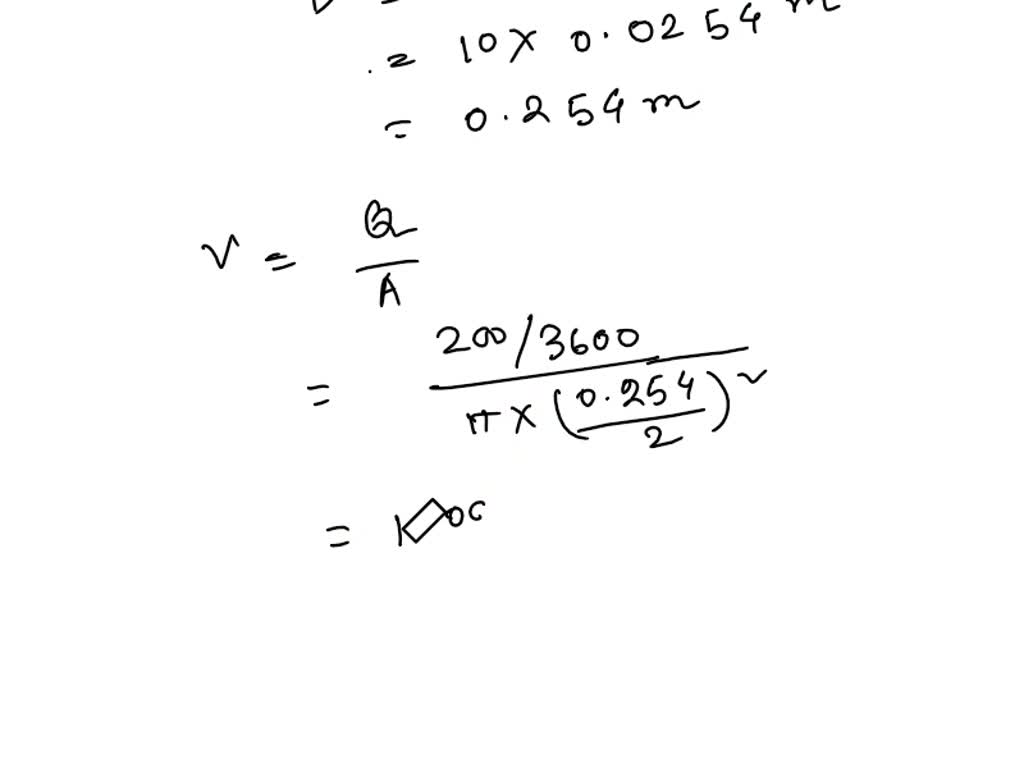 = 10 × 0.0254 m
= 0.254 m
V = Q/A
= 200/3600 / π × (0.254/2)²
=